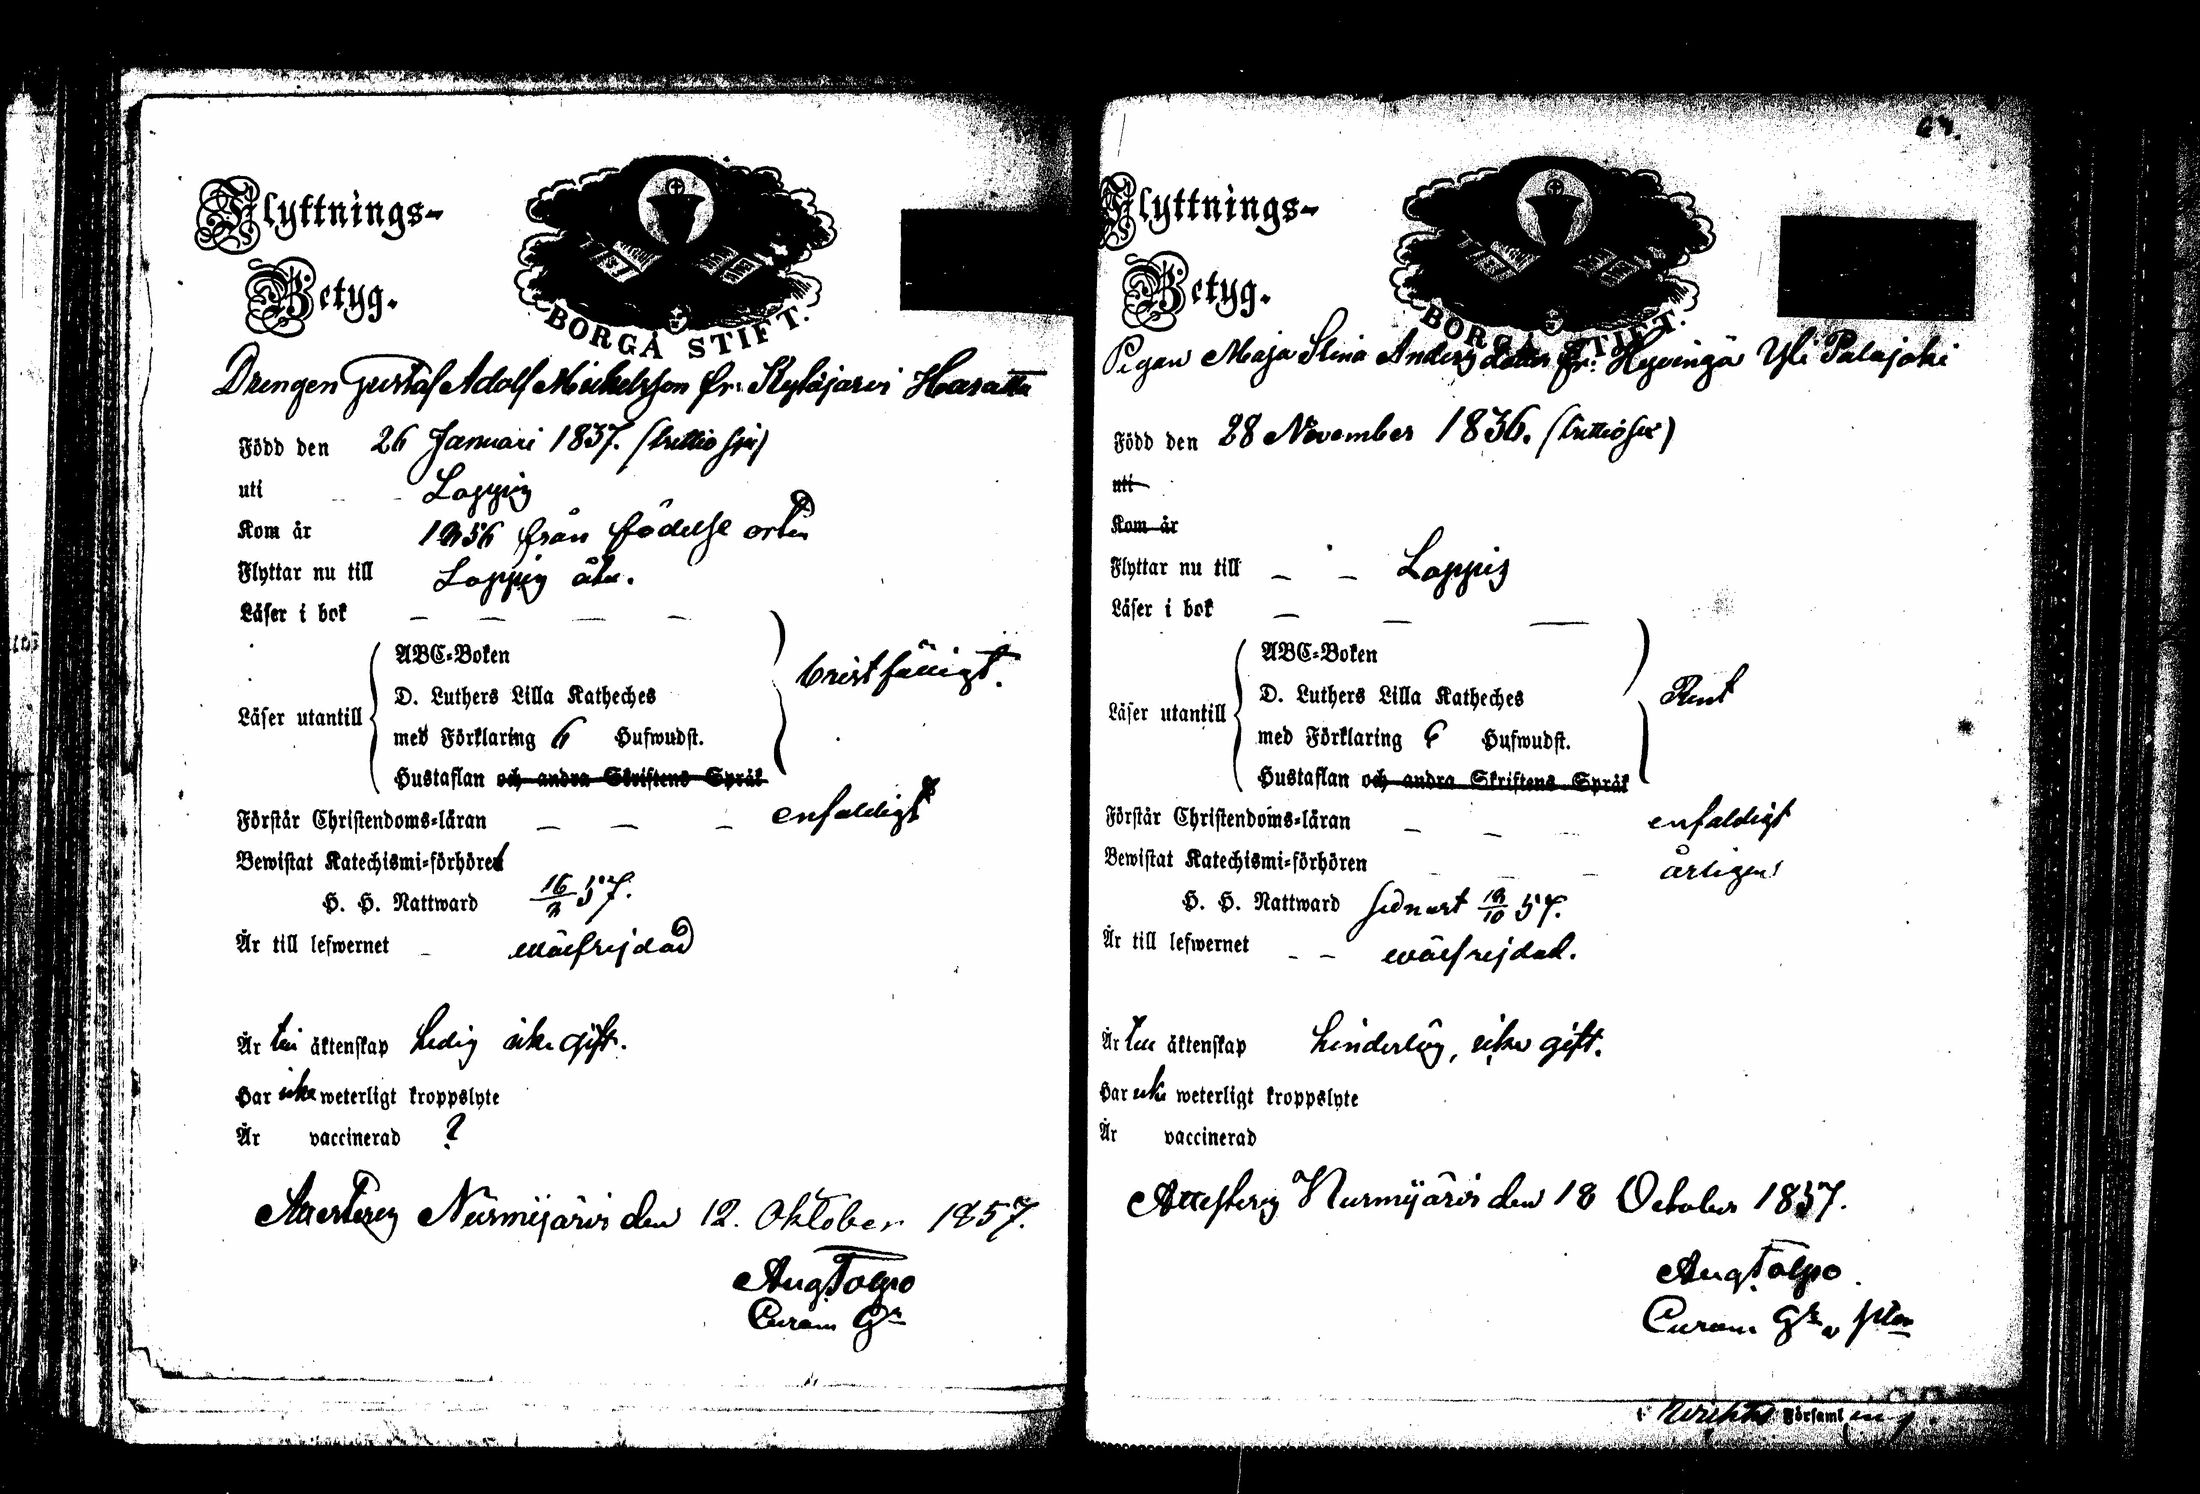 Flyttnings-
Betyg.
BORGÅ STIFT.
Drengen Gustaf Adolf Michelsson fr: Kyläjärvi Haratta
Född den 26 Januari 1837. (trettio sju)
uti - - Loppis
Kom år 1856 från födelse orten
Flyttar nu till Loppis åter.
Läser i bok — — — —
Läser utantill
ABC-Boken
D. Luthers Lilla Katheches
med Förklaring 6 Hufwudst.
Hustaflan och andra Skriftens Språk
bristfälligt.
Förstår Christendoms-läran — — — enfaldigt
Bewistat Katechismi-förhören
H. H. Nattward 16/3 57.
Är till lefwernet - wälfrejdad
Är till äktenskap ledig icke gift.
Har icke weterligt kroppslyte
Är vaccinerad ?
Attesterar Nurmijärvi den 12. Oktober 1857.
Aug Tolpo
Curam Gr
67.
Flyttnings-
Betyg.
BORGÅ STIFT.
Pigan Maja Stina Anders dotter fr: Hyvingä Yli Palajoki
Född den 28 November 1836. (trettiosex)
uti
Kom år
Flyttar nu till — — Loppis
Läser i bok — — —
Läser utantill
ABC-Boken
D. Luthers Lilla Katheches
med Förklaring 6 Hufwudst.
Hustaflan och andra Skriftens Språk
Rent
Förstår Christendoms-läran — — - enfaldigt
Bewistat Katechismi-förhören - - - årligen
H. H. Nattward sednast 18/10 57.
Är till lefwernet - - wälfrejdad.
Är till äktenskap hinderlös, icke gift.
Har icke weterligt kroppslyte
Är vaccinerad
Attesterar Nurmijärvi den 18 October 1857.
Aug Tolpo.
Curam Gr
Församling